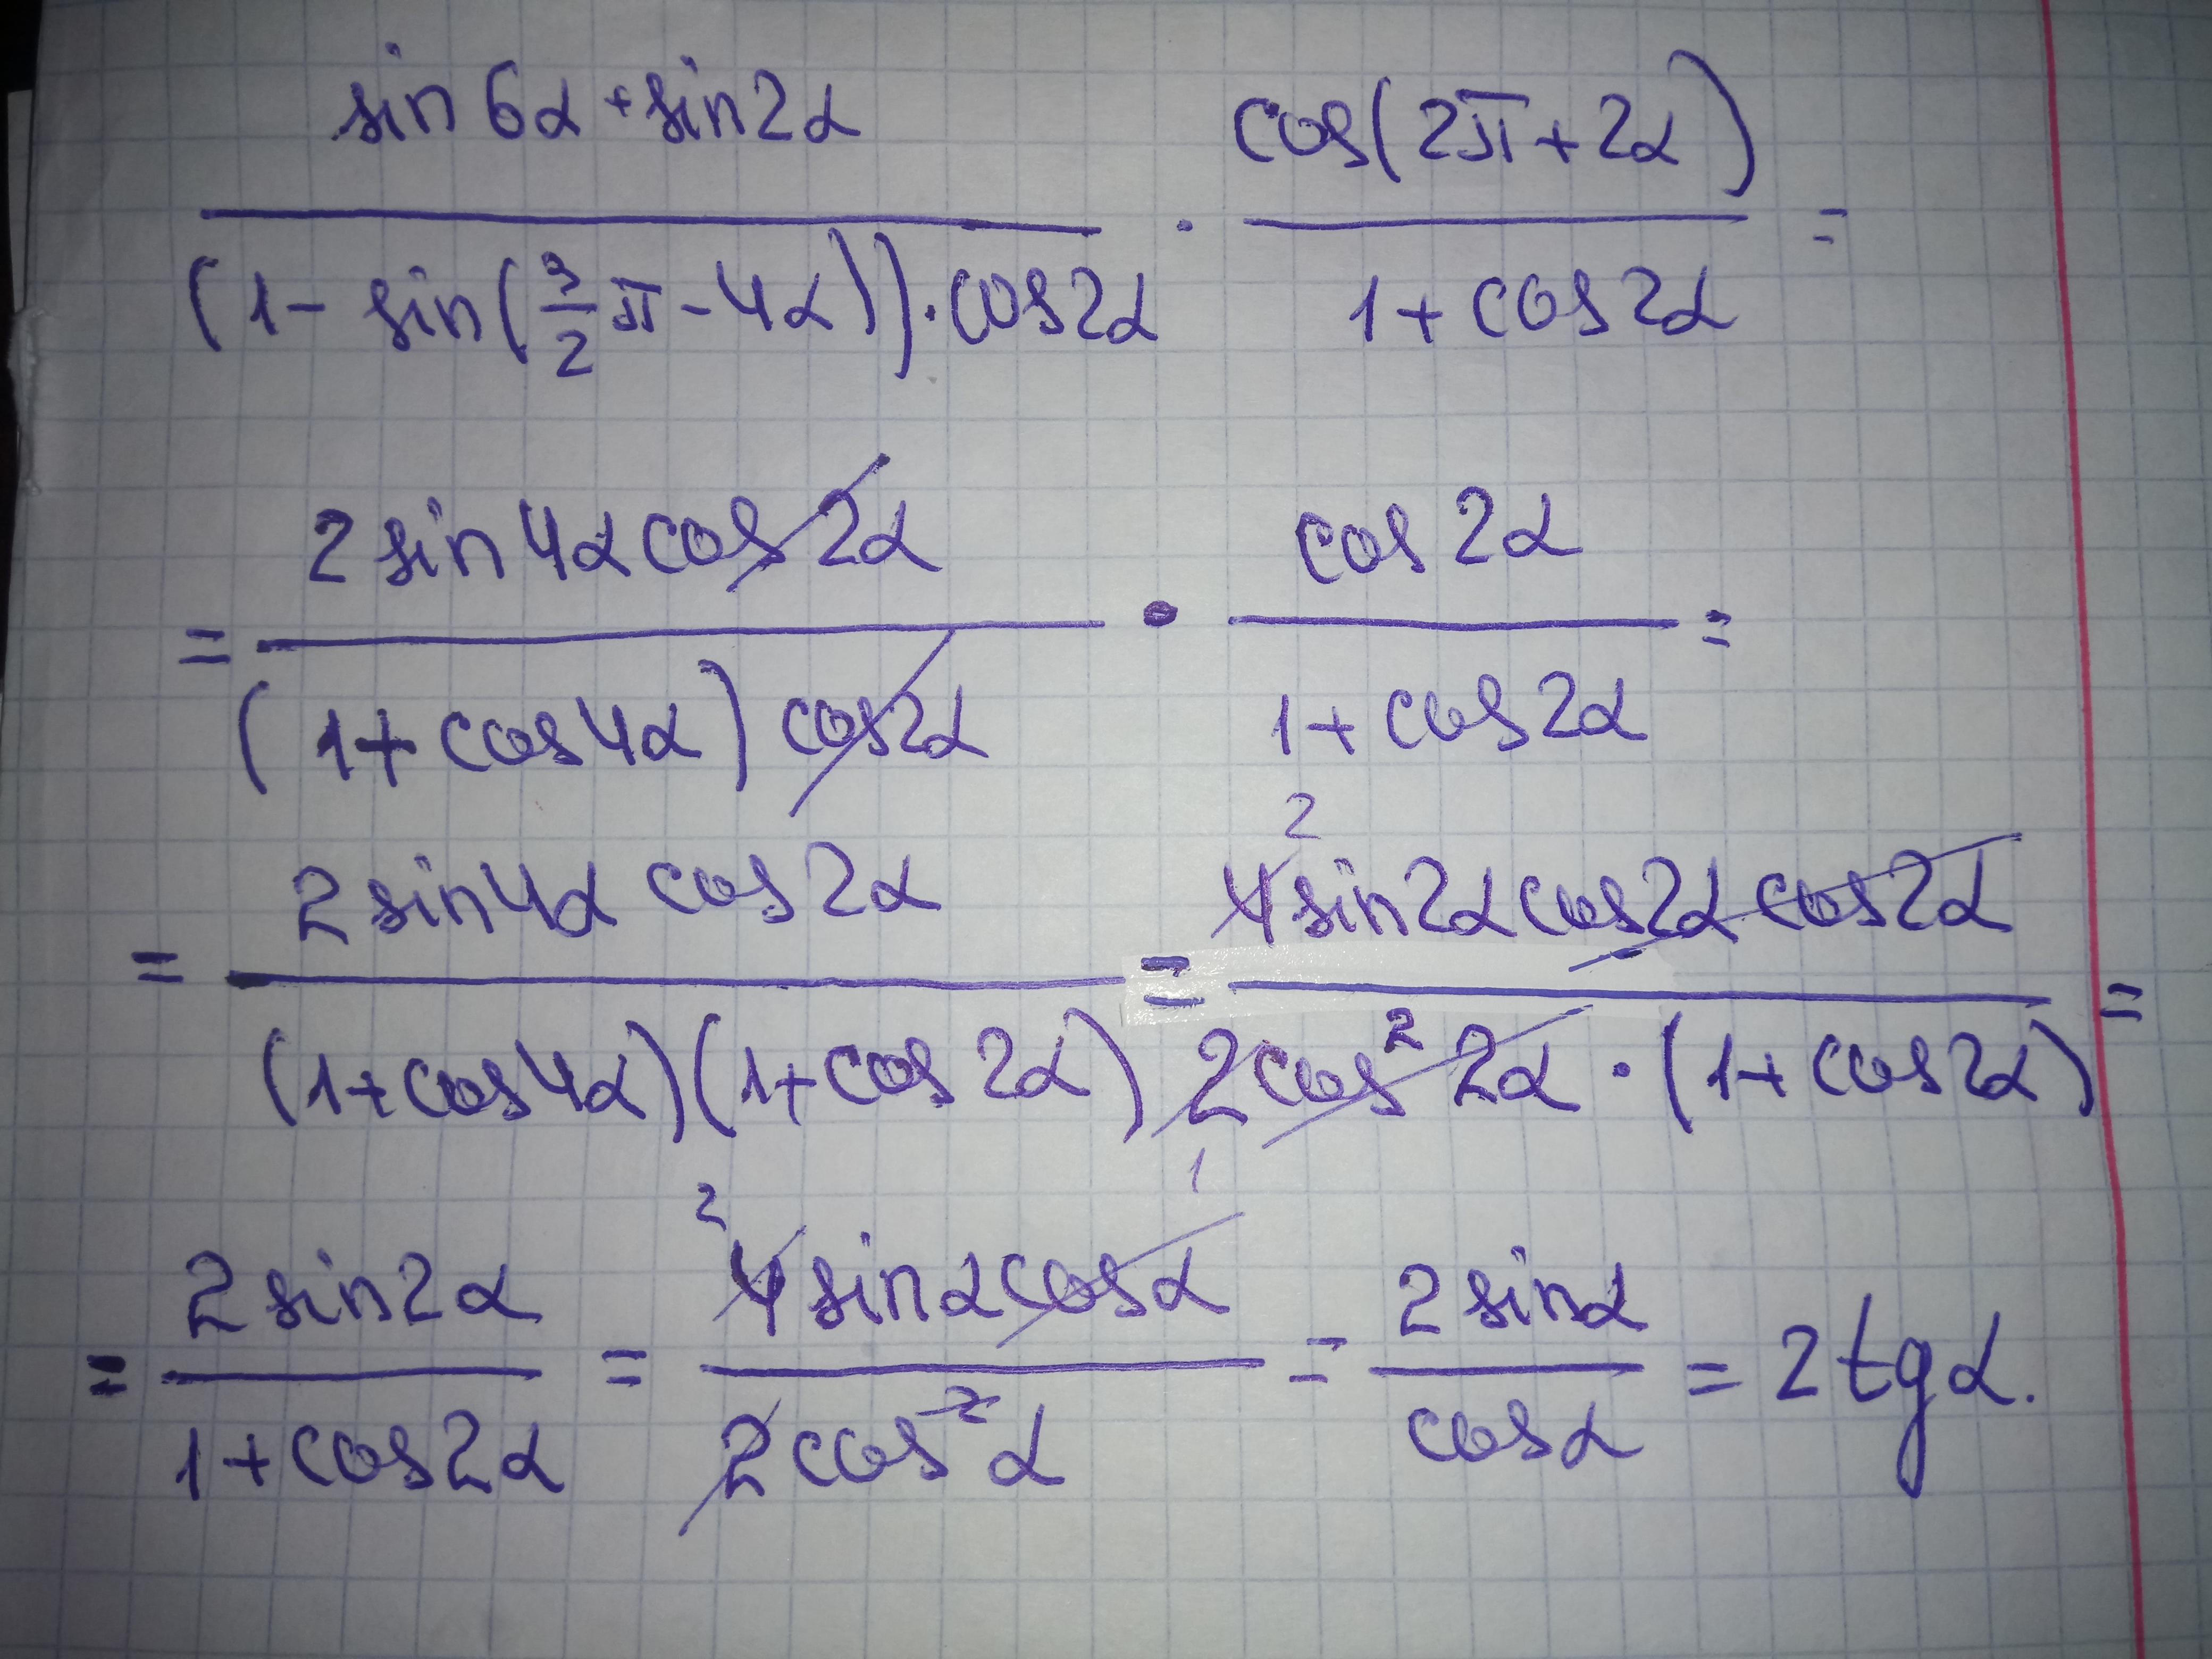 sin6α + sin2α / (1 - sin(3/2 π - 4α)) · cos2α · cos(2π + 2α) / 1 + cos2α =
= 2 sin4α cos2α / (1 + cos4α) cos2α · cos2α / 1 + cos2α =
= 2 sin4α cos2α / (1 + cos4α)(1 + cos2α) = 4 2 sin2α cos2α cos2α / 2 1 cos² 2α · (1 + cos2α) =
= 2 sin2α / 1 + cos2α = 4 2 sinα cosα / 2 cos² α = 2 sinα / cosα = 2 tgα.